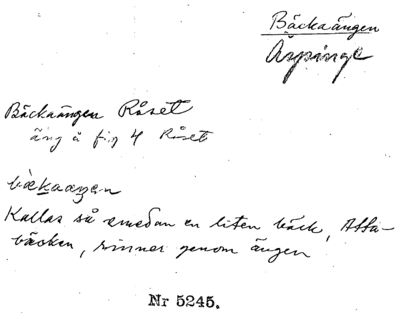 Bäckaängen
Äspinge
Bäckaängen Råset
äng å fig 4 Råset
bækaaŋen
Kallas så emedan en liten bäck, Alla-
bäcken, rinner genom ängen
Nr 5245.